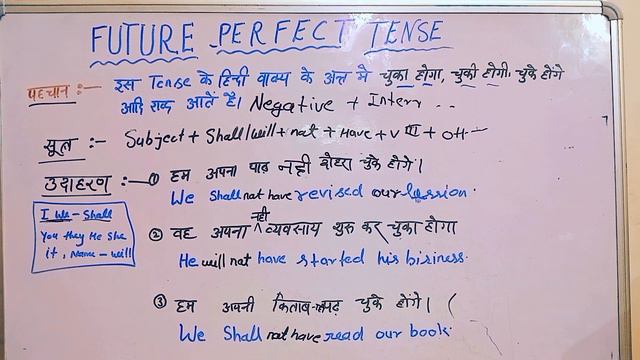 FUTURE PERFECT TENSE
पहचान :- इस Tense के हिन्दी वाक्य के अन्त मे चुका होगा, चुकी होगी, चुके होंगे
आदि शब्द आते है। Negative + Interr ..
सूत्र :- Subject + Shall/will + not + Have + V III + Oth
उदाहरण :- ① हम अपना पाठ नही दोहरा चुके होंगे।
We Shall not have revised our lession.
② वह अपना नही व्यवसाय शुरु कर चुका होगा
He will not have started his biziness.
③ हम अपनी किताब पढ़ चुके होंगे। (
We Shall not have read our book.
I We - Shall
You they He She
it, Name - will